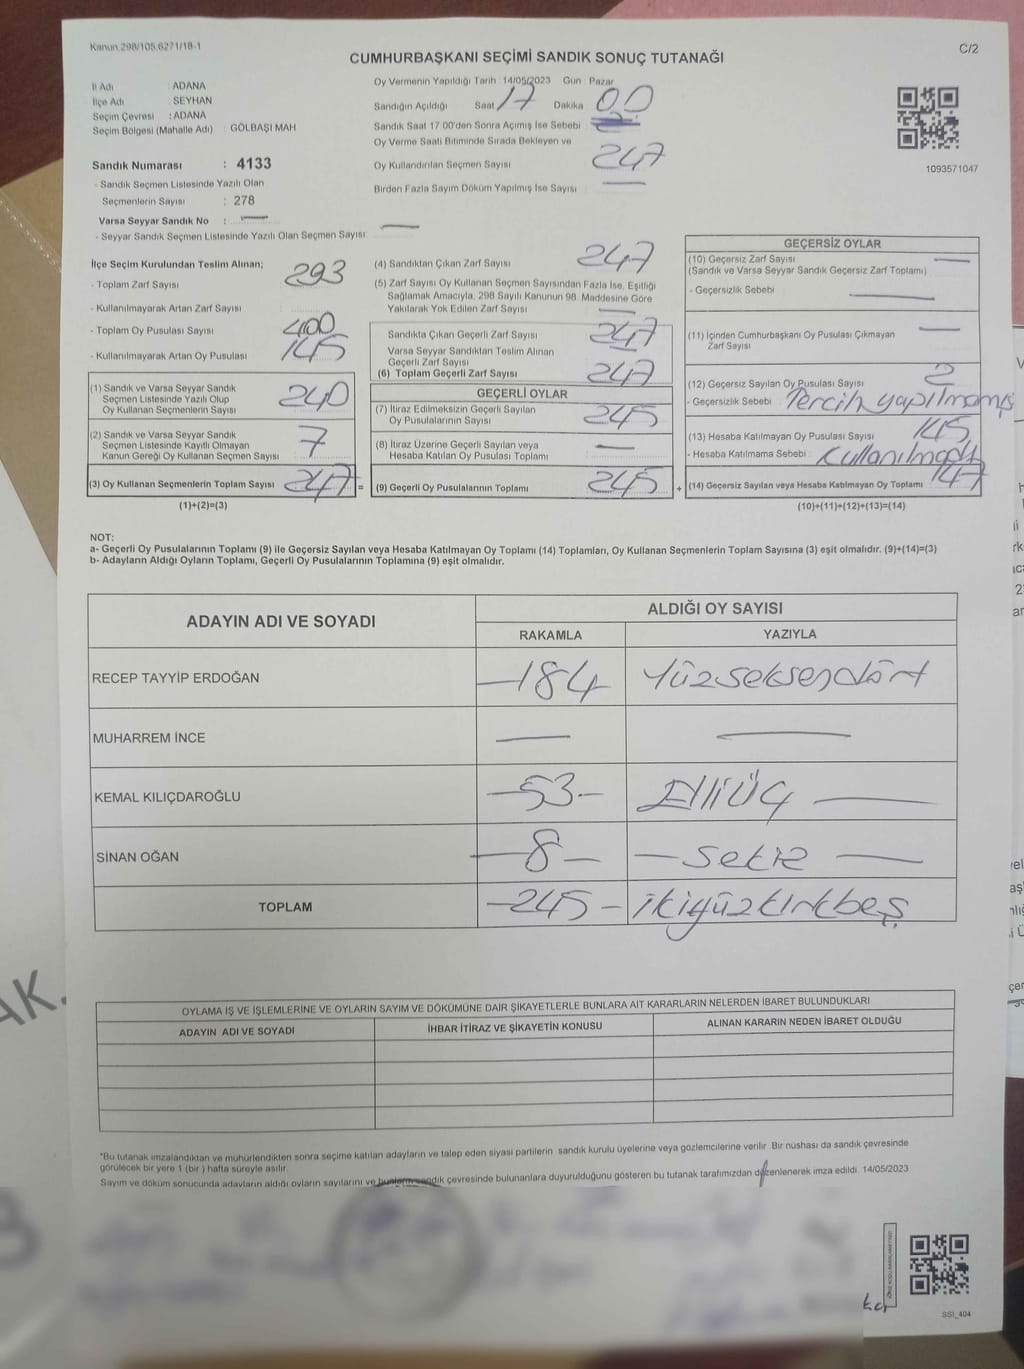 Kanun.298/105.6271/18-1
C/2
CUMHURBAŞKANI SEÇİMİ SANDIK SONUÇ TUTANAĞI
İl Adı : ADANA
İlçe Adı : SEYHAN
Seçim Çevresi : ADANA
Seçim Bölgesi (Mahalle Adı) : GÖLBAŞI MAH
Sandık Numarası : 4133
- Sandık Seçmen Listesinde Yazılı Olan
Seçmenlerin Sayısı : 278
Varsa Seyyar Sandık No :
- Seyyar Sandık Seçmen Listesinde Yazılı Olan Seçmen Sayısı:
Oy Vermenin Yapıldığı Tarih : 14/05/2023 Gün : Pazar
Sandığın Açıldığı Saat 17 Dakika 00
Sandık Saat 17:00'den Sonra Açılmış İse Sebebi
Oy Verme Saati Bitiminde Sırada Bekleyen ve
Oy Kullandırılan Seçmen Sayısı 247
Birden Fazla Sayım Döküm Yapılmış İse Sayısı
1093571047
İlçe Seçim Kurulundan Teslim Alınan;
- Toplam Zarf Sayısı 293
- Kullanılmayarak Artan Zarf Sayısı
- Toplam Oy Pusulası Sayısı 400
- Kullanılmayarak Artan Oy Pusulası 145
(1) Sandık ve Varsa Seyyar Sandık
Seçmen Listesinde Yazılı Olup
Oy Kullanan Seçmenlerin Sayısı 240
(2) Sandık ve Varsa Seyyar Sandık
Seçmen Listesinde Kayıtlı Olmayan
Kanun Gereği Oy Kullanan Seçmen Sayısı 7
(3) Oy Kullanan Seçmenlerin Toplam Sayısı 247 =
(1)+(2)=(3)
(4) Sandıktan Çıkan Zarf Sayısı 247
(5) Zarf Sayısı Oy Kullanan Seçmen Sayısından Fazla İse, Eşitliği
Sağlamak Amacıyla, 298 Sayılı Kanunun 98. Maddesine Göre
Yakılarak Yok Edilen Zarf Sayısı
Sandıkta Çıkan Geçerli Zarf Sayısı 247
Varsa Seyyar Sandıktan Teslim Alınan
Geçerli Zarf Sayısı
(6) Toplam Geçerli Zarf Sayısı 247
GEÇERLİ OYLAR
(7) İtiraz Edilmeksizin Geçerli Sayılan
Oy Pusulalarının Sayısı 245
(8) İtiraz Üzerine Geçerli Sayılan veya
Hesaba Katılan Oy Pusulası Toplamı
(9) Geçerli Oy Pusulalarının Toplamı 245 +
GEÇERSİZ OYLAR
(10) Geçersiz Zarf Sayısı
(Sandık ve Varsa Seyyar Sandık Geçersiz Zarf Toplamı)
- Geçersizlik Sebebi :
(11) İçinden Cumhurbaşkanı Oy Pusulası Çıkmayan
Zarf Sayısı
(12) Geçersiz Sayılan Oy Pusulası Sayısı 2
- Geçersizlik Sebebi : Tercih yapılmamış
(13) Hesaba Katılmayan Oy Pusulası Sayısı 145
- Hesaba Katılmama Sebebi : Kullanılmadı
(14) Geçersiz Sayılan veya Hesaba Katılmayan Oy Toplamı 147
(10)+(11)+(12)+(13)=(14)
NOT:
a- Geçerli Oy Pusulalarının Toplamı (9) ile Geçersiz Sayılan veya Hesaba Katılmayan Oy Toplamı (14) Toplamları, Oy Kullanan Seçmenlerin Toplam Sayısına (3) eşit olmalıdır. (9)+(14)=(3)
b- Adayların Aldığı Oyların Toplamı, Geçerli Oy Pusulalarının Toplamına (9) eşit olmalıdır.
ADAYIN ADI VE SOYADI
ALDIĞI OY SAYISI
RAKAMLA YAZIYLA
RECEP TAYYİP ERDOĞAN -184- Yüzseksendört
MUHARREM İNCE
KEMAL KILIÇDAROĞLU -53- Elliüç
SİNAN OĞAN -8- -Sekiz-
TOPLAM -245- ikiyüzkırkbeş
OYLAMA İŞ VE İŞLEMLERİNE VE OYLARIN SAYIM VE DÖKÜMÜNE DAİR ŞİKAYETLERLE BUNLARA AİT KARARLARIN NELERDEN İBARET BULUNDUKLARI
ADAYIN ADI VE SOYADI İHBAR İTİRAZ VE ŞİKAYETİN KONUSU ALINAN KARARIN NEDEN İBARET OLDUĞU
*Bu tutanak imzalandıktan ve mühürlendikten sonra seçime katılan adayların ve talep eden siyasi partilerin sandık kurulu üyelerine veya gözlemcilerine verilir. Bir nüshası da sandık çevresinde
görülecek bir yere 1 (bir) hafta süreyle asılır.
Sayım ve döküm sonucunda adayların aldığı oyların sayılarını ve bunların sandık çevresinde bulunanlara duyurulduğunu gösteren bu tutanak tarafımızdan düzenlenerek imza edildi. 14/05/2023
SSİ_404
AK.